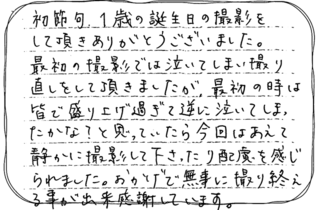 初節句、1歳の誕生日の撮影を
して頂きありがとうございました。
最初の撮影では泣いてしまい撮り
直しをして頂きましたが、最初の時は
皆で盛り上げ過ぎて逆に泣いてしまっ
たかな?と思っていたら今回はあえて
静かに撮影して下さったり配慮を感じ
られました。おかげで無事に撮り終え
る事が出来感謝しています。